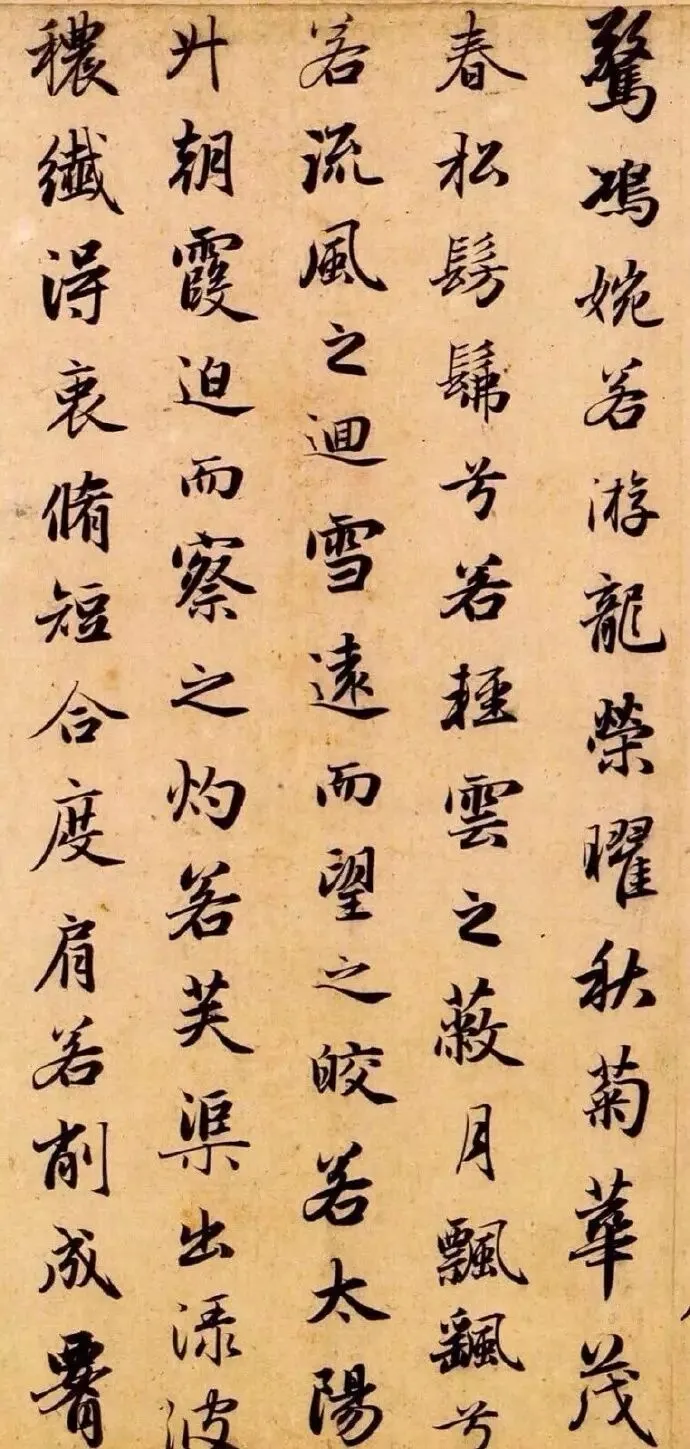 驚鴻婉若游龍榮曜秋菊華茂
春松髣髴兮若輕雲之蔽月飄颻兮
若流風之迴雪遠而望之皎若太陽
升朝霞迫而察之灼若芙渠出淥波
穠纖得衷脩短合度肩若削成